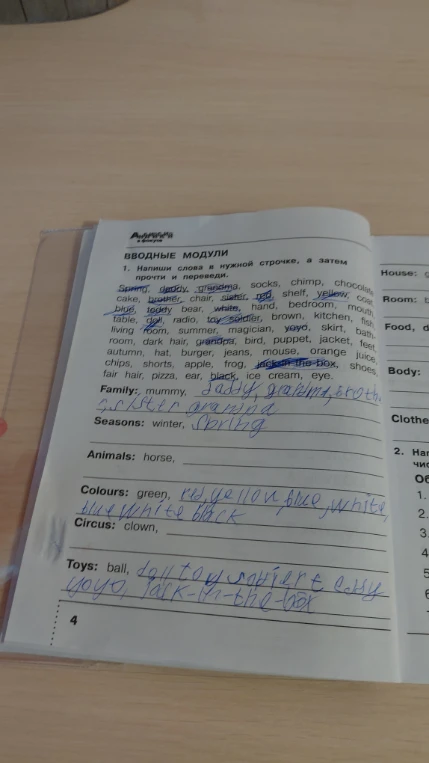 ВВОДНЫЕ МОДУЛИ
1. Напиши слова в нужной строчке, а затем
прочти и переведи.
Spring, daddy, grandma, socks, chimp, chocolate
cake, brother, chair, sister, red, shelf, yellow, coat,
blue, teddy bear, white, hand, bedroom, mouth,
table, doll, radio, toy soldier, brown, kitchen, fish,
living room, summer, magician, yoyo, skirt, bath-
room, dark hair, grandpa, bird, puppet, jacket, feet,
autumn, hat, burger, jeans, mouse, orange juice,
chips, shorts, apple, frog, jack-in-the-box, shoes,
fair hair, pizza, ear, black, ice cream, eye.
Family: mummy, daddy, grandma, broth
sister granpa
Seasons: winter, spring
Animals: horse,
Colours: green, red, yellow blue, white,
blue white black
Circus: clown,
Toys: ball, doll toy
yoyo, jack-in-the-box
4
House:
Room:
Food, d
Body:
Clothe
2. Нап
чис
Об
1.
2.
3.
4
5